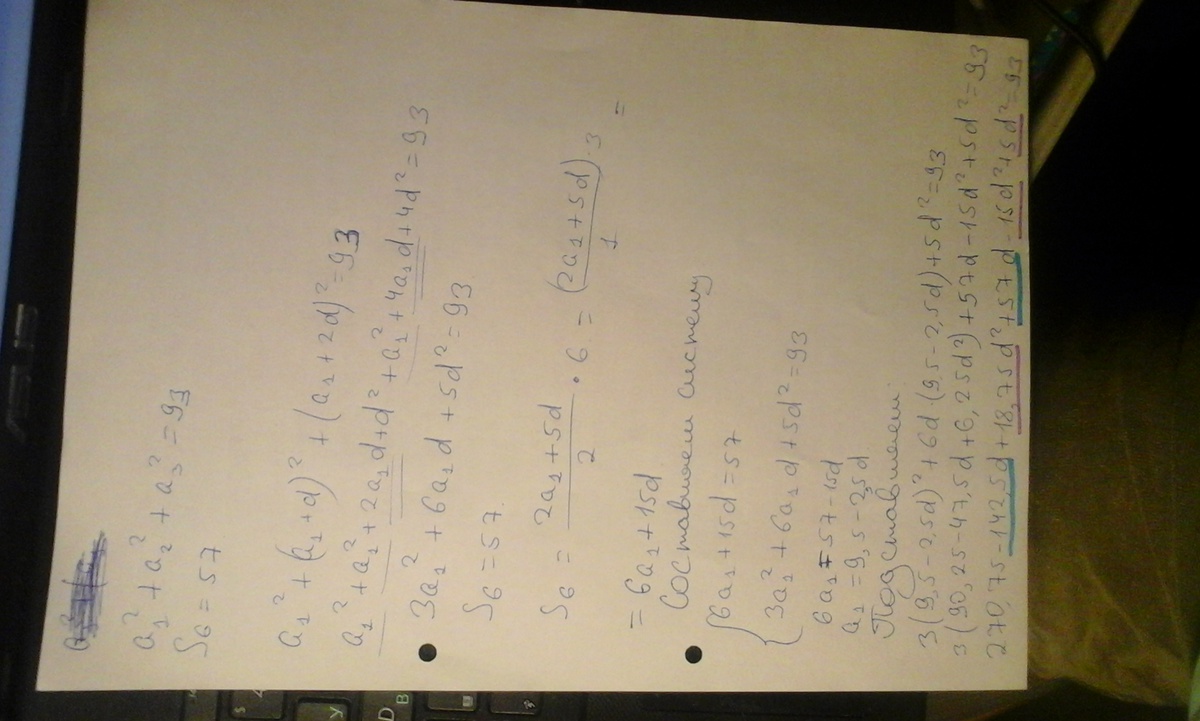 a₁² + a₂² + a₃² = 93
S₆ = 57
a₁² + (a₁ + d)² + (a₁ + 2d)² = 93
a₁² + a₁² + 2a₁d + d² + a₁² + 4a₁d + 4d² = 93
3a₁² + 6a₁d + 5d² = 93
S₆ = 57
S₆ = (2a₁ + 5d)/2 · 6 = (2a₁ + 5d)/1 · 3 =
= 6a₁ + 15d
Составляем систему
{ 6a₁ + 15d = 57
3a₁² + 6a₁d + 5d² = 93
6a₁ = 57 - 15d
a₁ = 9,5 - 2,5d
Подставляем:
3(9,5 - 2,5d)² + 6d·(9,5 - 2,5d) + 5d² = 93
3(90,25 - 47,5d + 6,25d²) + 57d - 15d² + 5d² = 93
270,75 - 142,5d + 18,75d² + 57d - 15d² + 5d² = 93